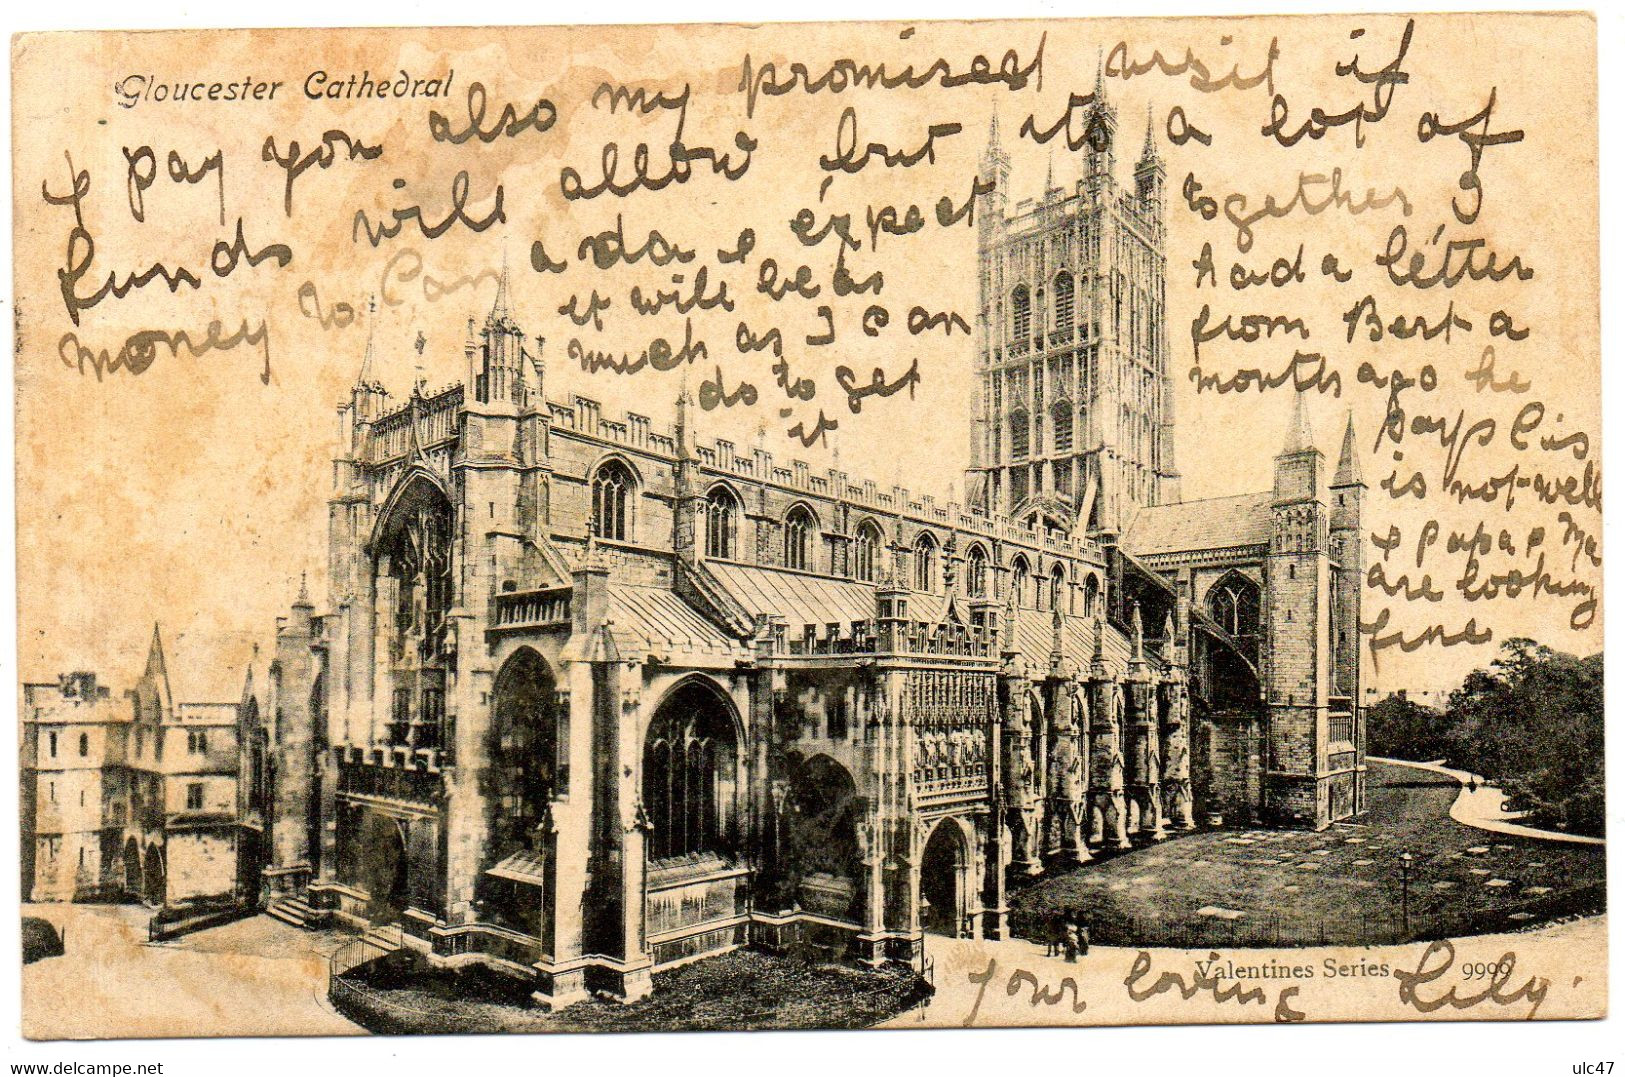 Gloucester Cathedral
& pay you also my promised visit if
funds will allow, but its a lot of
money to Can
ada & I expect
it will be as
much as I can
do to get
it
together I
had a letter
from Bert a
month ago he
says Cis
is not well
& Papa & Ma
are looking
fine
your loving Lily.
Valentines Series 9999
ulc47